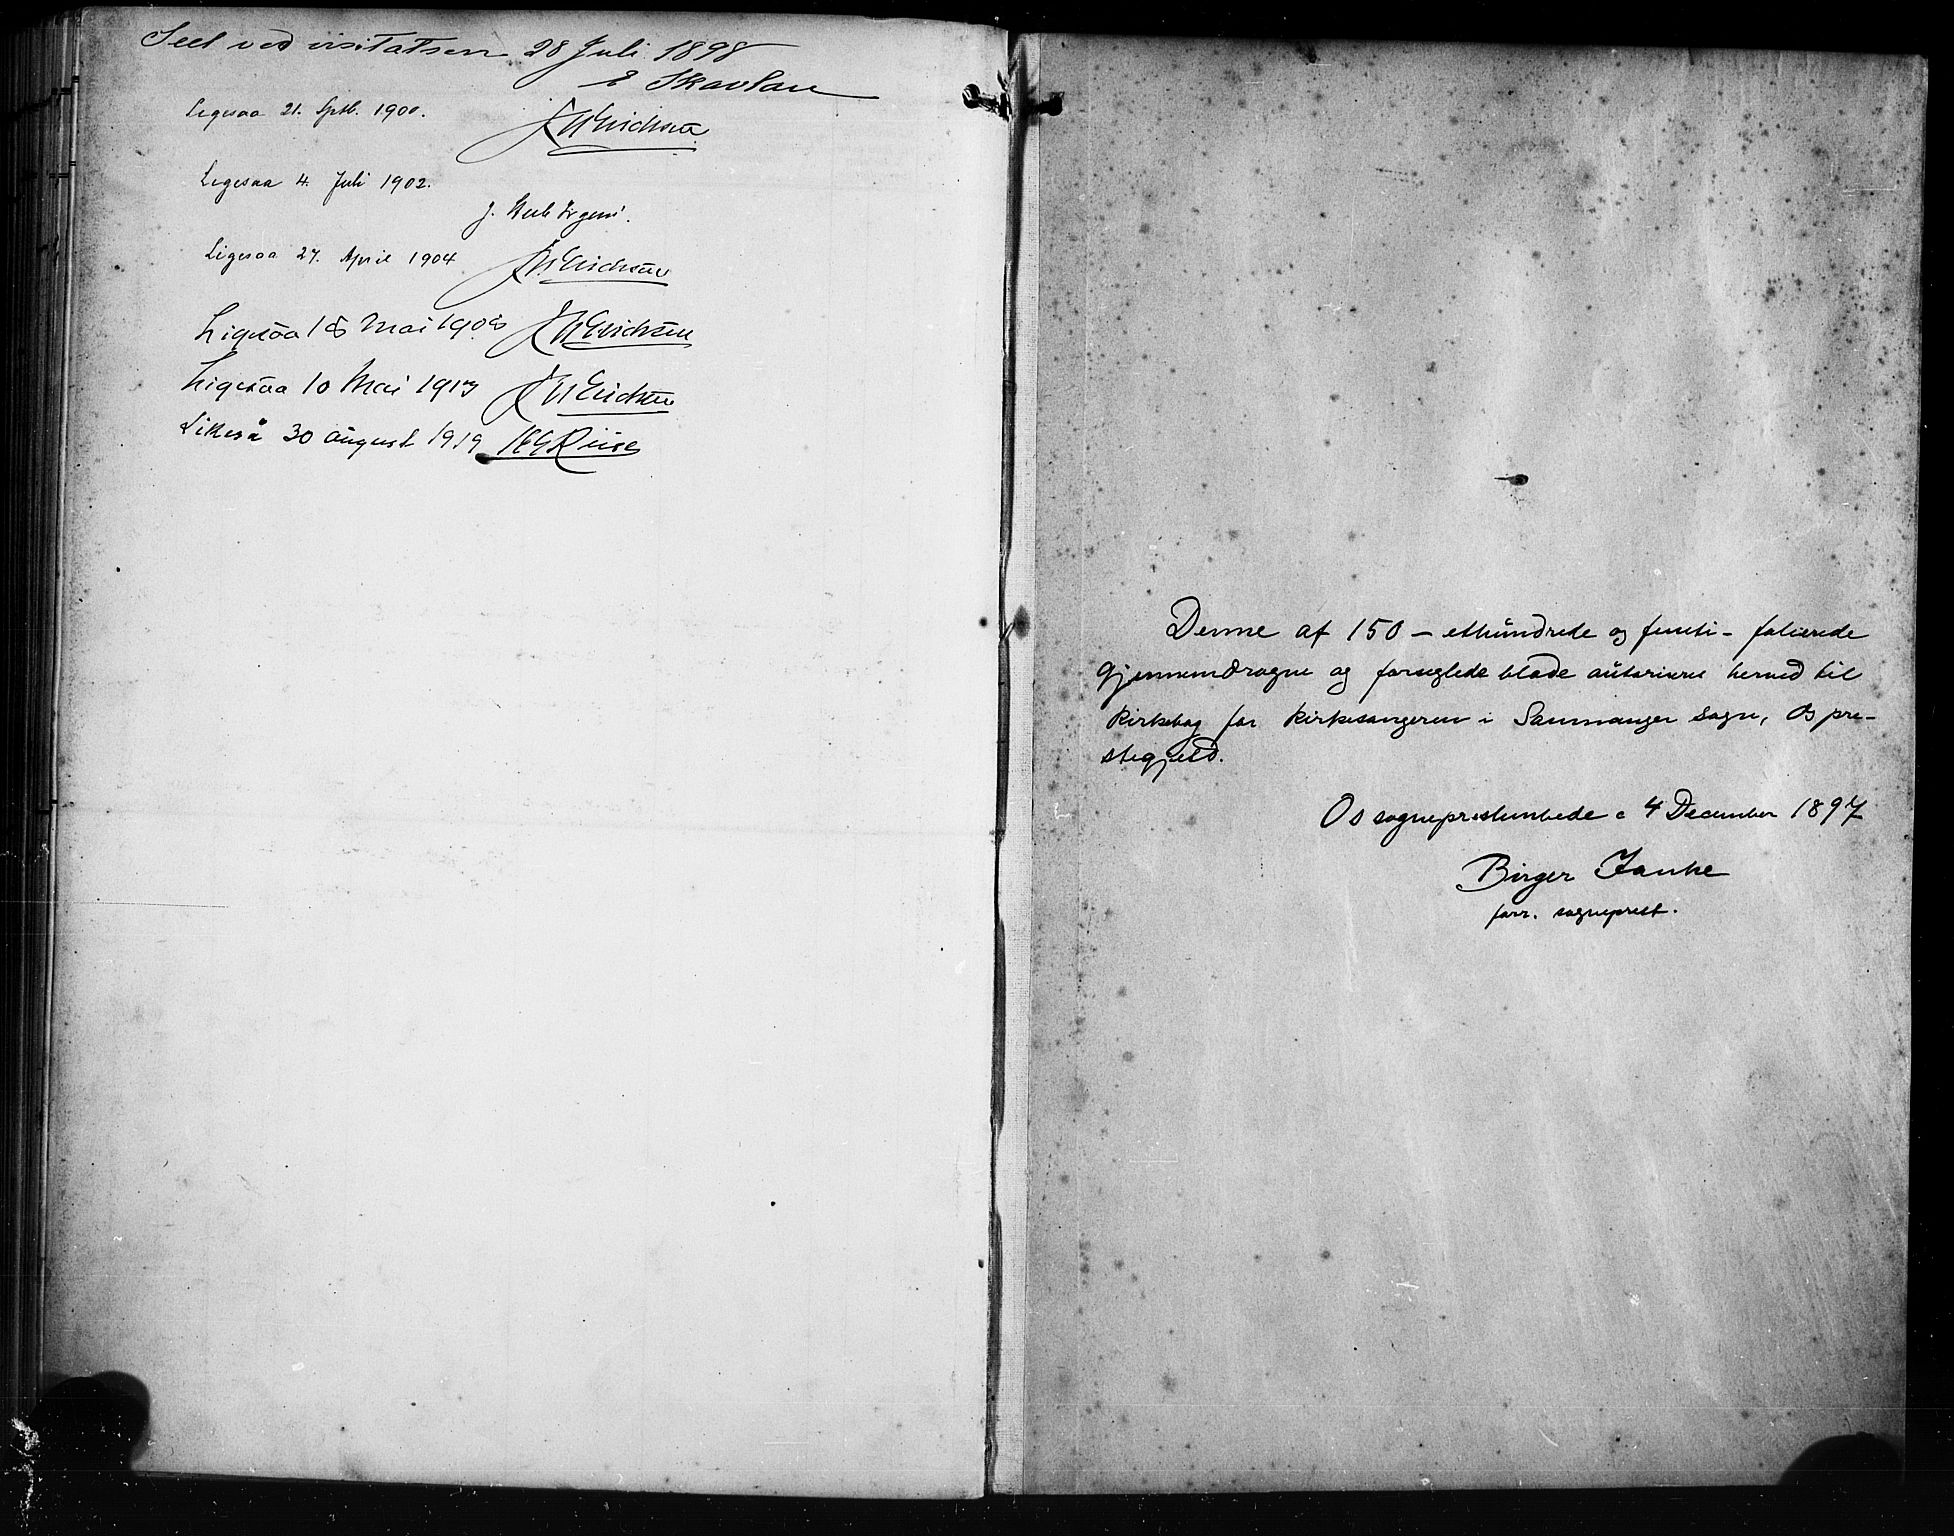 Seet ved visitatsen 28 Juli 1898
E Skavlan
Ligesaa 21. Sptb. 1900.
J W Erichsen
Ligesaa 4. Juli 1902.
Ligesaa 27. April 1904
J W Erichsen
Ligesaa 18 Mai 1908 J W Erichsen
Ligesaa 10 Mai 1913 J W Erichsen
Likeså 30 august 1919
Denne af 150 – ethundrede og femti – folierede
gjennemdragne og forseglede blade autoriseres herved til
kirkebog for kirkesangeren i Sammanger sogn, Os pre-
stegjeld.
Os sogneprestembede 4 December 1897
Birger Janke
sogneprest.